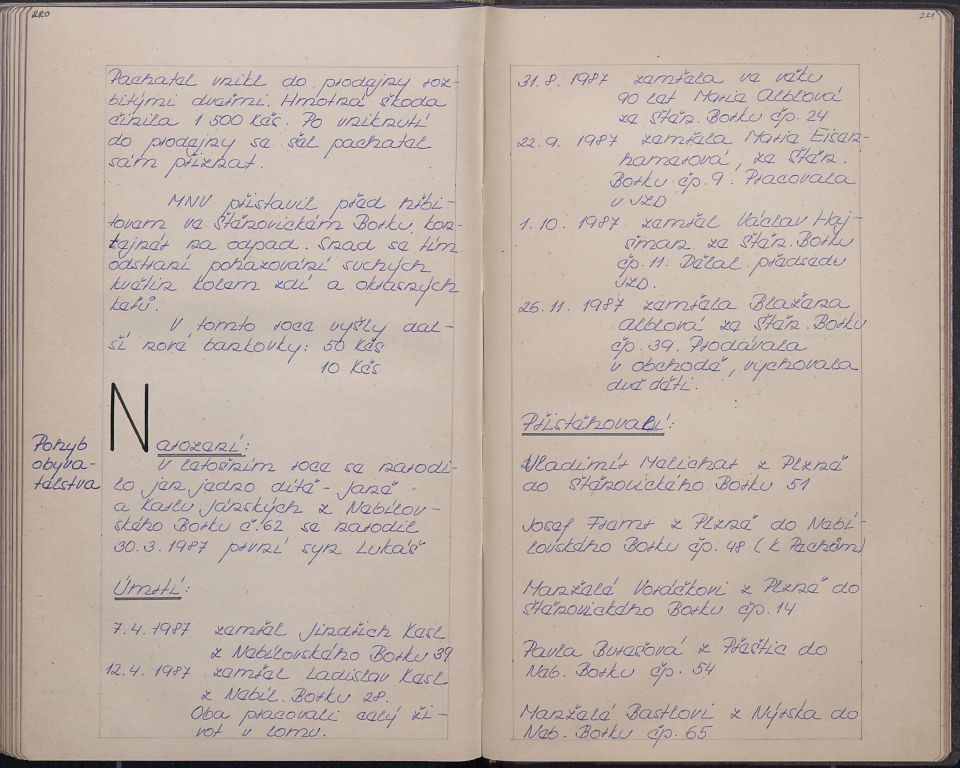 220
Pachatel vnikl do prodejny roz-
bitými dveřmi. Hmotná škoda
činila 1 500 Kčs. Po vniknutí
do prodejny se šel pachatel
sám přiznat.
MNV přistavil před hřbi-
tovem ve Štěnovickém Borku kon-
tejnér na odpad. Snad se tím
odstraní pohazování suchých
květin kolem zdí a okrasných
keřů.
V tomto roce vyšly dal-
ší nové bankovky: 50 Kčs
10 Kčs
Pohyb
obyva-
telstva
Narození:
V letošním roce se narodi-
lo jen jedno dítě - Janě
a Karlu Jánským z Nebílov-
ského Borku č. 62 se narodil
30.3.1987 první syn Lukáš
Úmrtí:
7.4.1987 zemřel Jindřich Kesl
z Nebílovského Borku 39
12.4.1987 zemřel Ladislav Kesl
z Nebíl. Borku 28.
Oba pracovali celý ži-
vot v lomu.
221
31.8. 1987 zemřela ve věku
90 let Marie Alblová
ze Štěn. Borku čp. 24
22.9. 1987 zemřela Marie Eisen-
hamerová, ze Štěn.
Borku čp. 9. Pracovala
v JZD
1.10. 1987 zemřel Václav Haj-
šman ze Štěn. Borku
čp. 11. Dělal předsedu
JZD.
26.11. 1987 zemřela Blažena
Alblová ze Štěn. Borku
čp. 39. Prodávala
v obchodě, vychovala
dvě děti.
Přistěhovalí:
Vladimír Melichar z Plzně
do Štěnovického Borku 51
Josef Framt z Plzně do Nebí-
lovského Borku čp. 48 (k Pechům)
Manželé Voráčkovi z Plzně do
Štěnovického Borku čp. 14
Pavla Burešová z Přeštic do
Neb. Borku čp. 54
Manželé Bastlovi z Nýrska do
Neb. Borku čp. 65